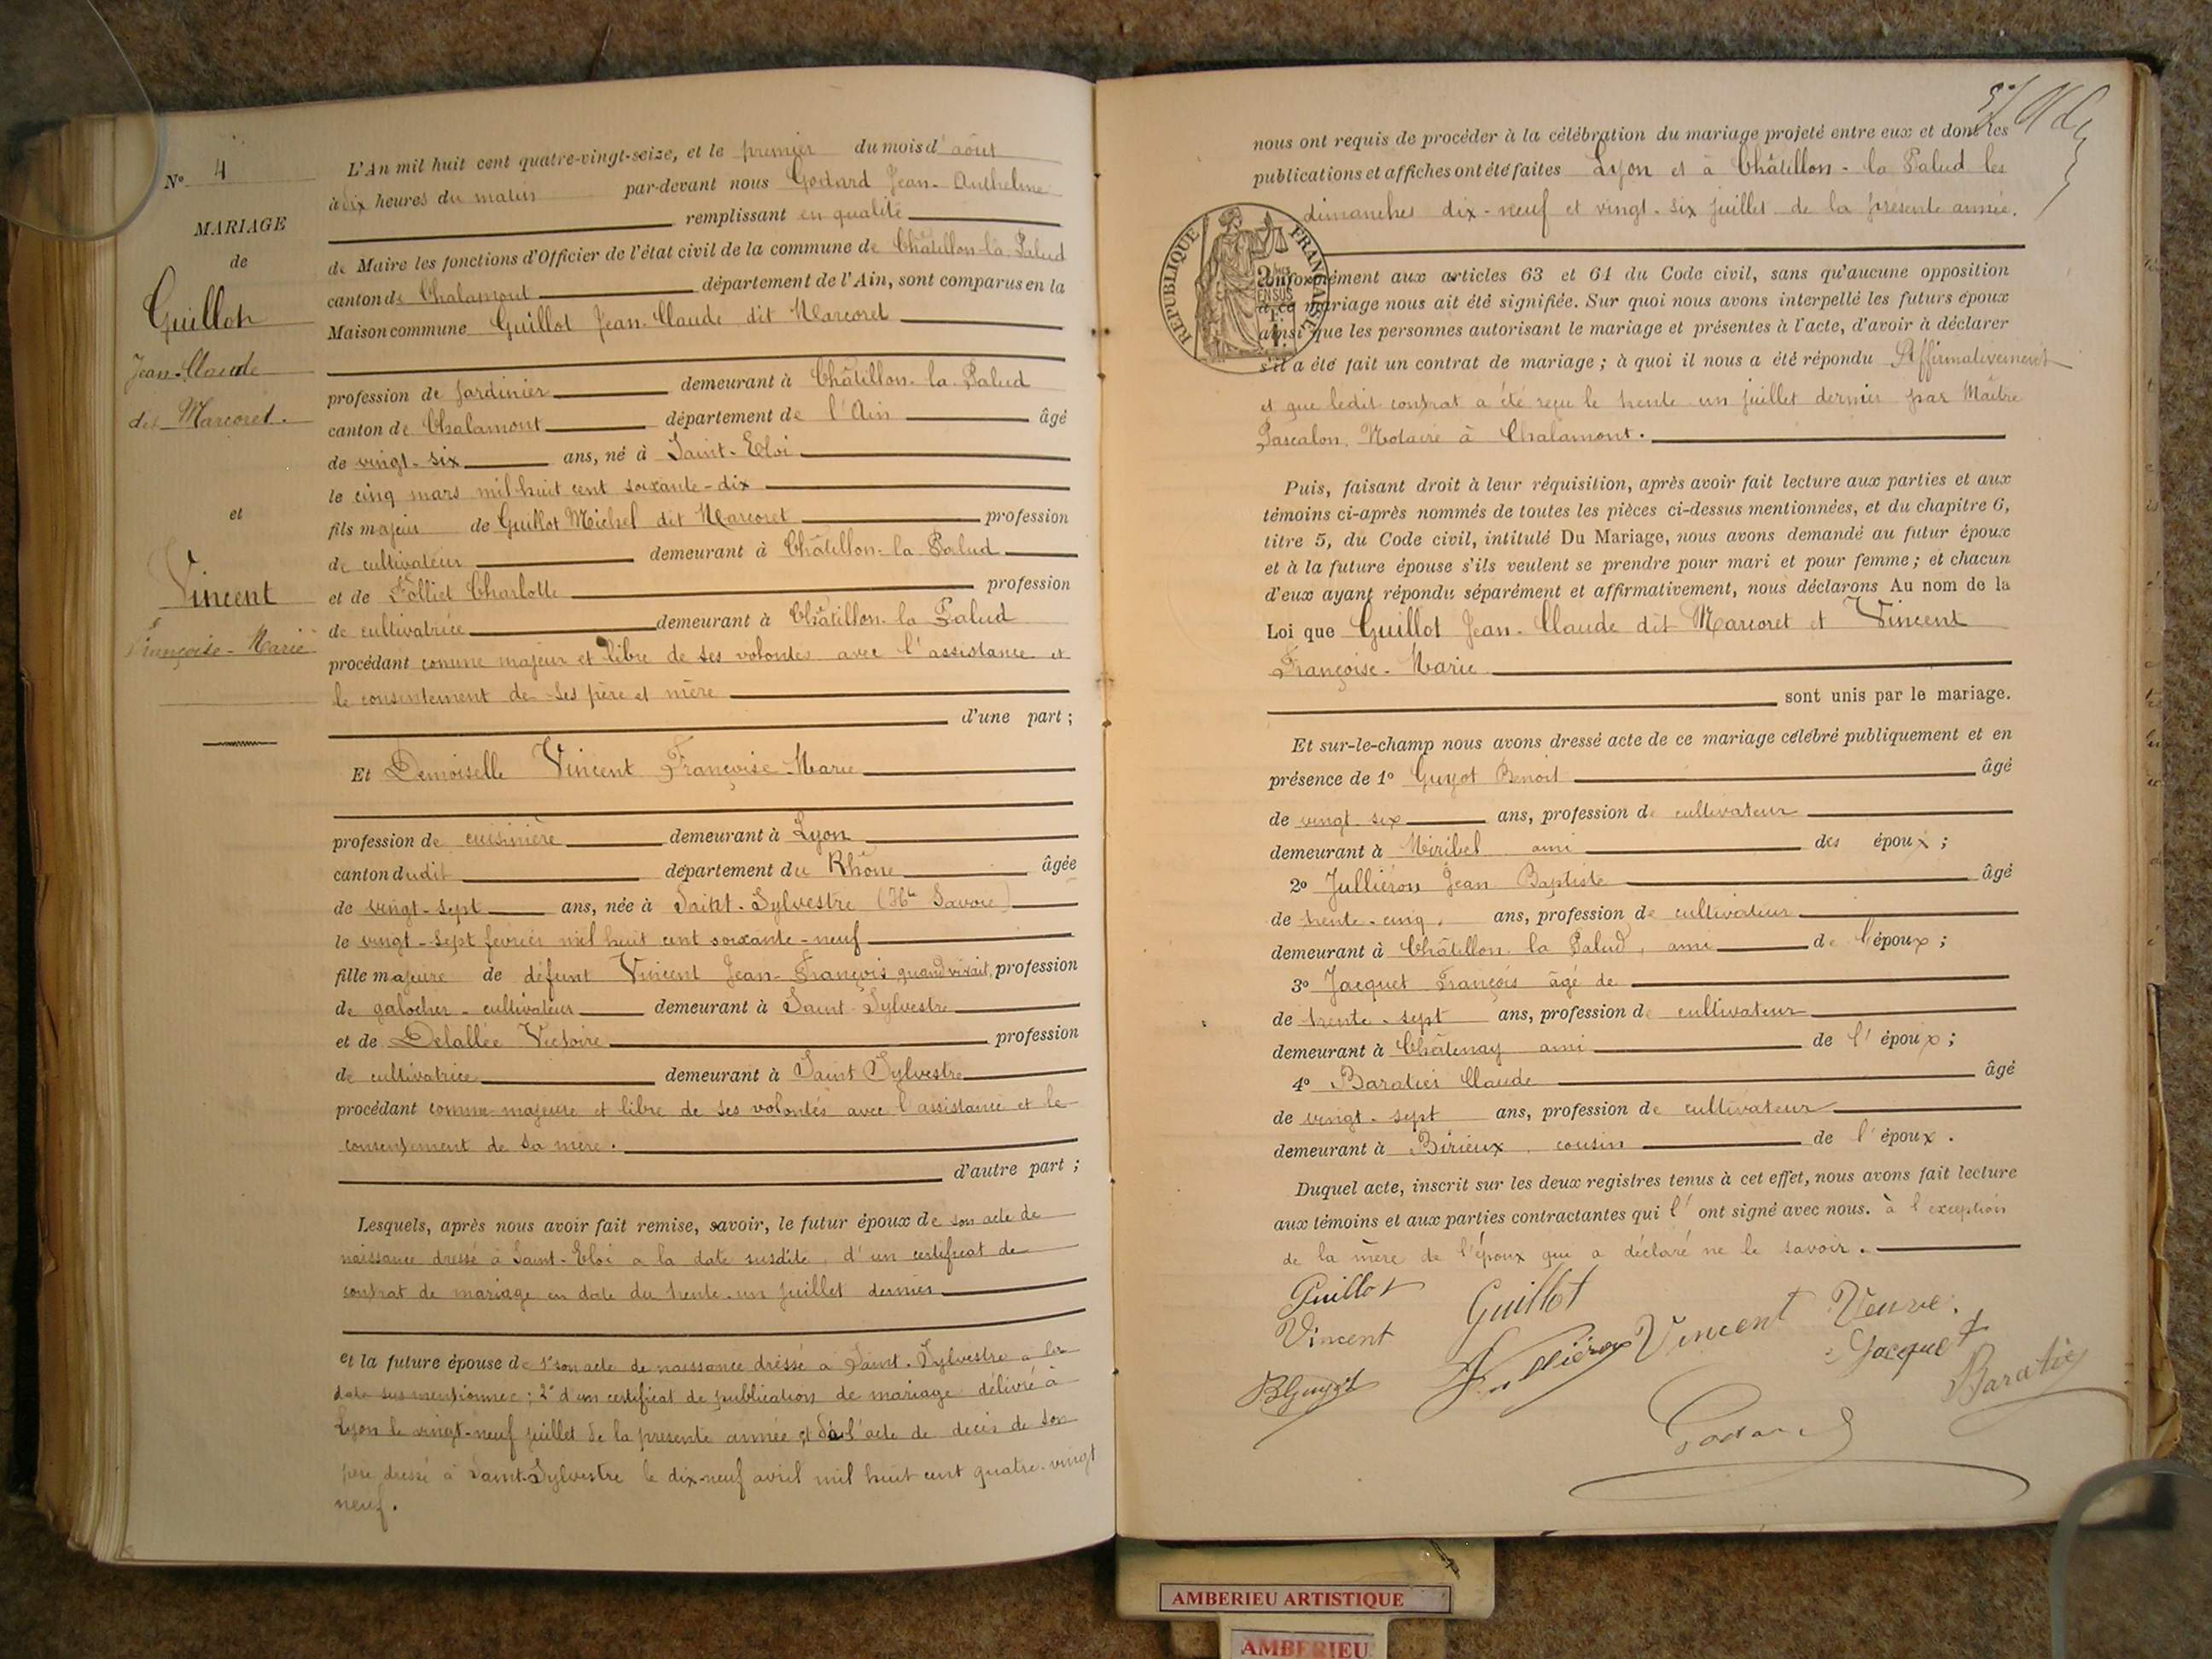 N° 4
MARIAGE
de
Guillot
Jean-Claude
dit Marcoret.
et
Vincent
Françoise-Marie
L'An mil huit cent quatre-vingt-seize, et le premier du mois d'août
à dix heures du matin par-devant nous Godard Jean-Anthelme
remplissant en qualité
de Maire les fonctions d'Officier de l'état civil de la commune de Châtillon-la-Palud
canton de Chalamont département de l'Ain, sont comparus en la
Maison commune Guillot Jean-Claude dit Marcoret
profession de Jardinier demeurant à Châtillon-la-Palud
canton de Chalamont département de l'Ain âgé
de vingt-six ans, né à Saint-Eloi
le cinq mars mil huit cent soixante-dix
fils majeur de Guillot Michel dit Marcoret profession
de cultivateur demeurant à Châtillon-la-Palud
et de Folliet Charlotte profession
de cultivatrice demeurant à Châtillon-la-Palud
procédant comme majeur et libre de ses volontés avec l'assistance et
le consentement de ses père et mère
d'une part ;
Et Demoiselle Vincent Françoise-Marie
profession de cuisinière demeurant à Lyon
canton dudit département du Rhône âgée
de vingt-sept ans, née à Saint-Sylvestre (Hte Savoie)
le vingt-sept février mil huit cent soixante-neuf
fille majeure de défunt Vincent Jean-François quand vivait, profession
de galocher-cultivateur demeurant à Saint-Sylvestre
et de Delallée Victoire profession
de cultivatrice demeurant à Saint Sylvestre
procédant comme majeure et libre de ses volontés avec l'assistance et le
consentement de sa mère.
d'autre part ;
Lesquels, après nous avoir fait remise, savoir, le futur époux de son acte de
naissance dressé à Saint-Eloi a la date susdite, d'un certificat de
contrat de mariage en date du trente-un juillet dernier
et la future épouse de 1° son acte de naissance dressé à Saint-Sylvestre a la
date sus mentionnée ; 2° d'un certificat de publication de mariage délivré à
Lyon le vingt-neuf juillet de la présente année et de l'acte de décès de son
père dressé à Saint-Sylvestre le dix-neuf avril mil huit cent quatre-vingt
neuf.
nous ont requis de procéder à la célébration du mariage projeté entre eux et dont les
publications et affiches ont été faites Lyon et à Châtillon-la Palud les
dimanches dix-neuf et vingt-six juillet de la présente année.
RÉPUBLIQUE FRANÇAISE
2 EN SUS
conformément aux articles 63 et 64 du Code civil, sans qu'aucune opposition
à ce mariage nous ait été signifiée. Sur quoi nous avons interpellé les futurs époux
ainsi que les personnes autorisant le mariage et présentes à l'acte, d'avoir à déclarer
s'il a été fait un contrat de mariage ; à quoi il nous a été répondu Affirmativement
et que ledit contrat a été reçu le trente un juillet dernier par Maître
Pascalon, Notaire à Chalamont.
Puis, faisant droit à leur réquisition, après avoir fait lecture aux parties et aux
témoins ci-après nommés de toutes les pièces ci-dessus mentionnées, et du chapitre 6,
titre 5, du Code civil, intitulé Du Mariage, nous avons demandé au futur époux
et à la future épouse s'ils veulent se prendre pour mari et pour femme ; et chacun
d'eux ayant répondu séparément et affirmativement, nous déclarons Au nom de la
Loi que Guillot Jean-Claude dit Marcoret et Vincent
Françoise-Marie
sont unis par le mariage.
Et sur-le-champ nous avons dressé acte de ce mariage célébré publiquement et en
présence de 1° Guyot Benoit âgé
de vingt six ans, profession de cultivateur
demeurant à Miribel ami des époux ;
2° Jullieron Jean Baptiste âgé
de trente-cinq ans, profession de cultivateur
demeurant à Châtillon la Palud, ami de l'époux ;
3° Jacquet François âgé de
de trente-sept ans, profession de cultivateur
demeurant à Châtenay ami de l'époux ;
4° Baratier Claude âgé
de vingt-sept ans, profession de cultivateur
demeurant à Birieux, cousin de l'époux.
Duquel acte, inscrit sur les deux registres tenus à cet effet, nous avons fait lecture
aux témoins et aux parties contractantes qui l'ont signé avec nous. à l'exception
de la mère de l'époux qui a déclaré ne le savoir.
Guillot Guillot
Vincent Jullieron Vincent Veuve.
Jacquet
BGuyot Baratier
Godard
AMBERIEU ARTISTIQUE
AMBERIEU